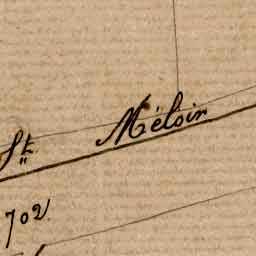 St. Méloir
702